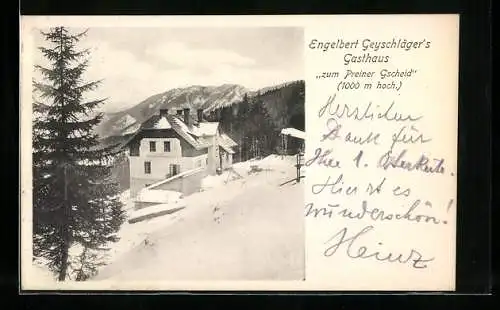 Engelbert Geyschläger's
Gasthaus
„zum Preiner Gscheid"
(1000 m hoch.)
Herzlichen
Dank für
Ihre l. Osterkarte.
Hier ist es
wunderschön!
Heinz